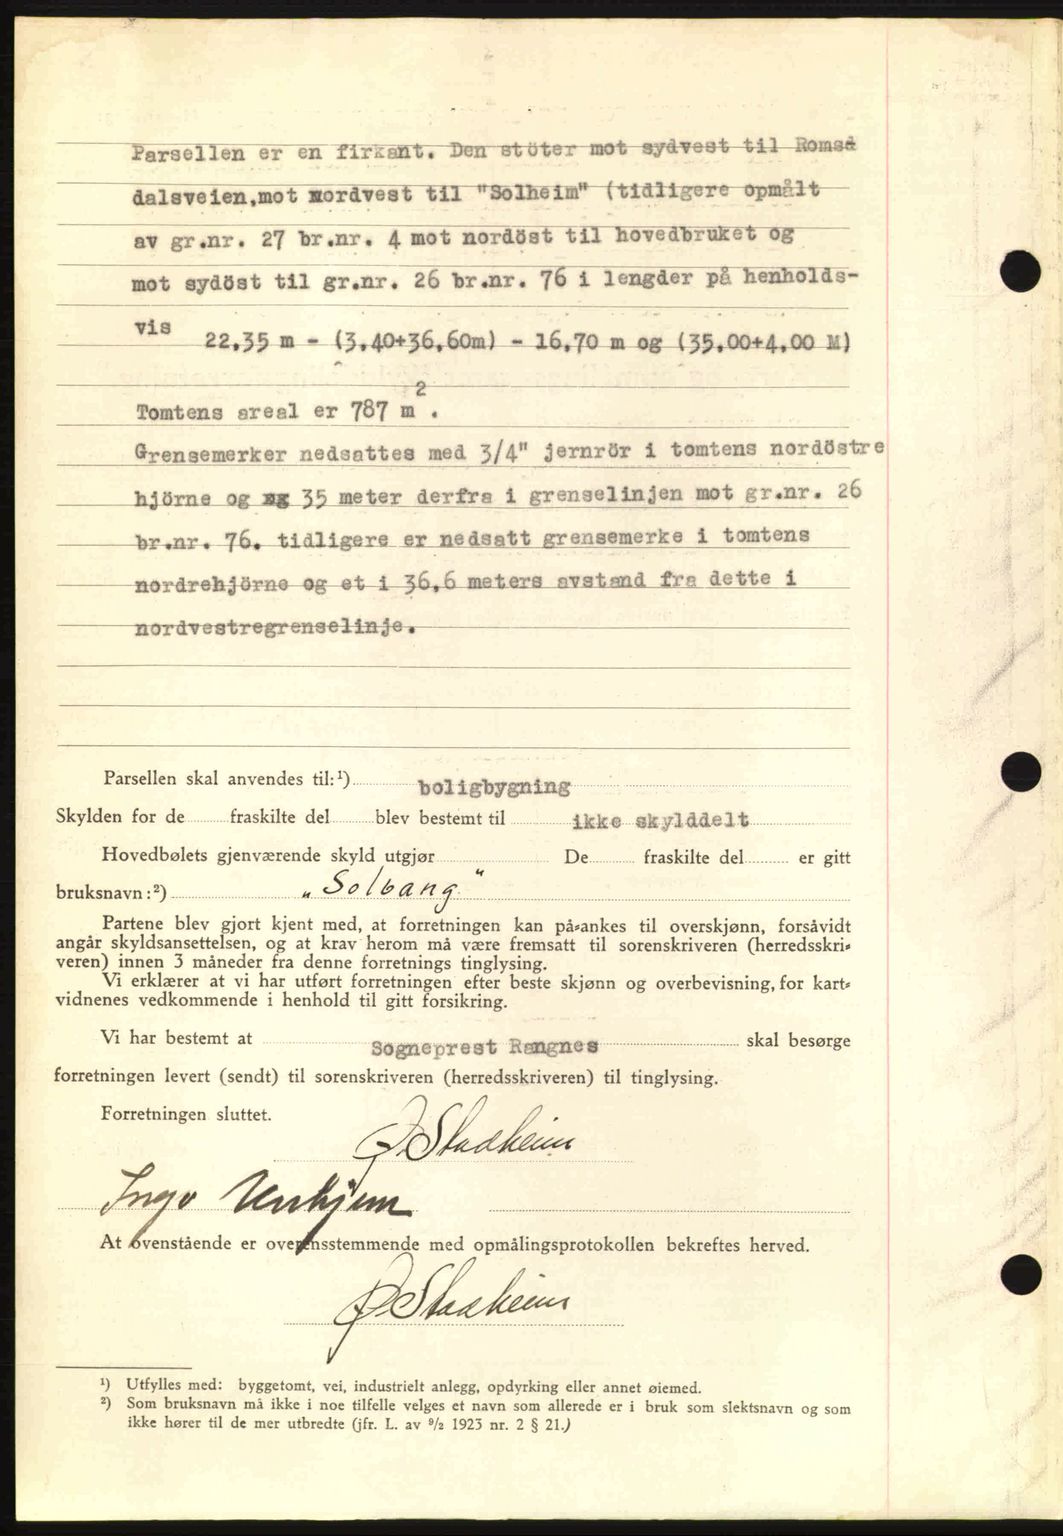 Parsellen er en firkant. Den stöter mot sydvest til Romsd
dalsveien,mot nordvest til "Solheim" (tidligere opmålt
av gr.nr. 27 br.nr. 4 mot nordöst til hovedbruket og
mot sydöst til gr.nr. 26 br.nr. 76 i lengder på henholds-
vis 22,35 m - (3,40+36,60m) - 16,70 m og (35,00+4,00 M)
Tomtens areal er 787 m².
Grensemerker nedsattes med 3/4" jernrör i tomtens nordöstre
hjörne og 35 meter derfra i grenselinjen mot gr.nr. 26
br.nr. 76. tidligere er nedsatt grensemerke i tomtens
nordrehjörne og et i 36,6 meters avstand fra dette i
nordvestregrenselinje.
Parsellen skal anvendes til:¹) boligbygning
Skylden for de fraskilte del blev bestemt til ikke skylddelt
Hovedbølets gjenværende skyld utgjør De fraskilte del er gitt
bruksnavn:²) „Solvang"
Partene blev gjort kjent med, at forretningen kan på-ankes til overskjønn, forsåvidt
angår skyldsansettelsen, og at krav herom må være fremsatt til sorenskriveren (herredsskri-
veren) innen 3 måneder fra denne forretnings tinglysing.
Vi erklærer at vi har utført forretningen efter beste skjønn og overbevisning, for kart-
vidnenes vedkommende i henhold til gitt forsikring.
Vi har bestemt at Sogneprest Rangnes skal besørge
forretningen levert (sendt) til sorenskriveren (herredsskriveren) til tinglysing.
Forretningen sluttet.
Ø. Stadheim
Ingv
At ovenstående er overensstemmende med opmålingsprotokollen bekreftes herved.
Ø. Stadheim
¹) Utfylles med: byggetomt, vei, industrielt anlegg, opdyrking eller annet øiemed.
²) Som bruksnavn må ikke i noe tilfelle velges et navn som allerede er i bruk som slektsnavn og som
ikke hører til de mer utbredte (jfr. L. av 9/2 1923 nr. 2 § 21.)